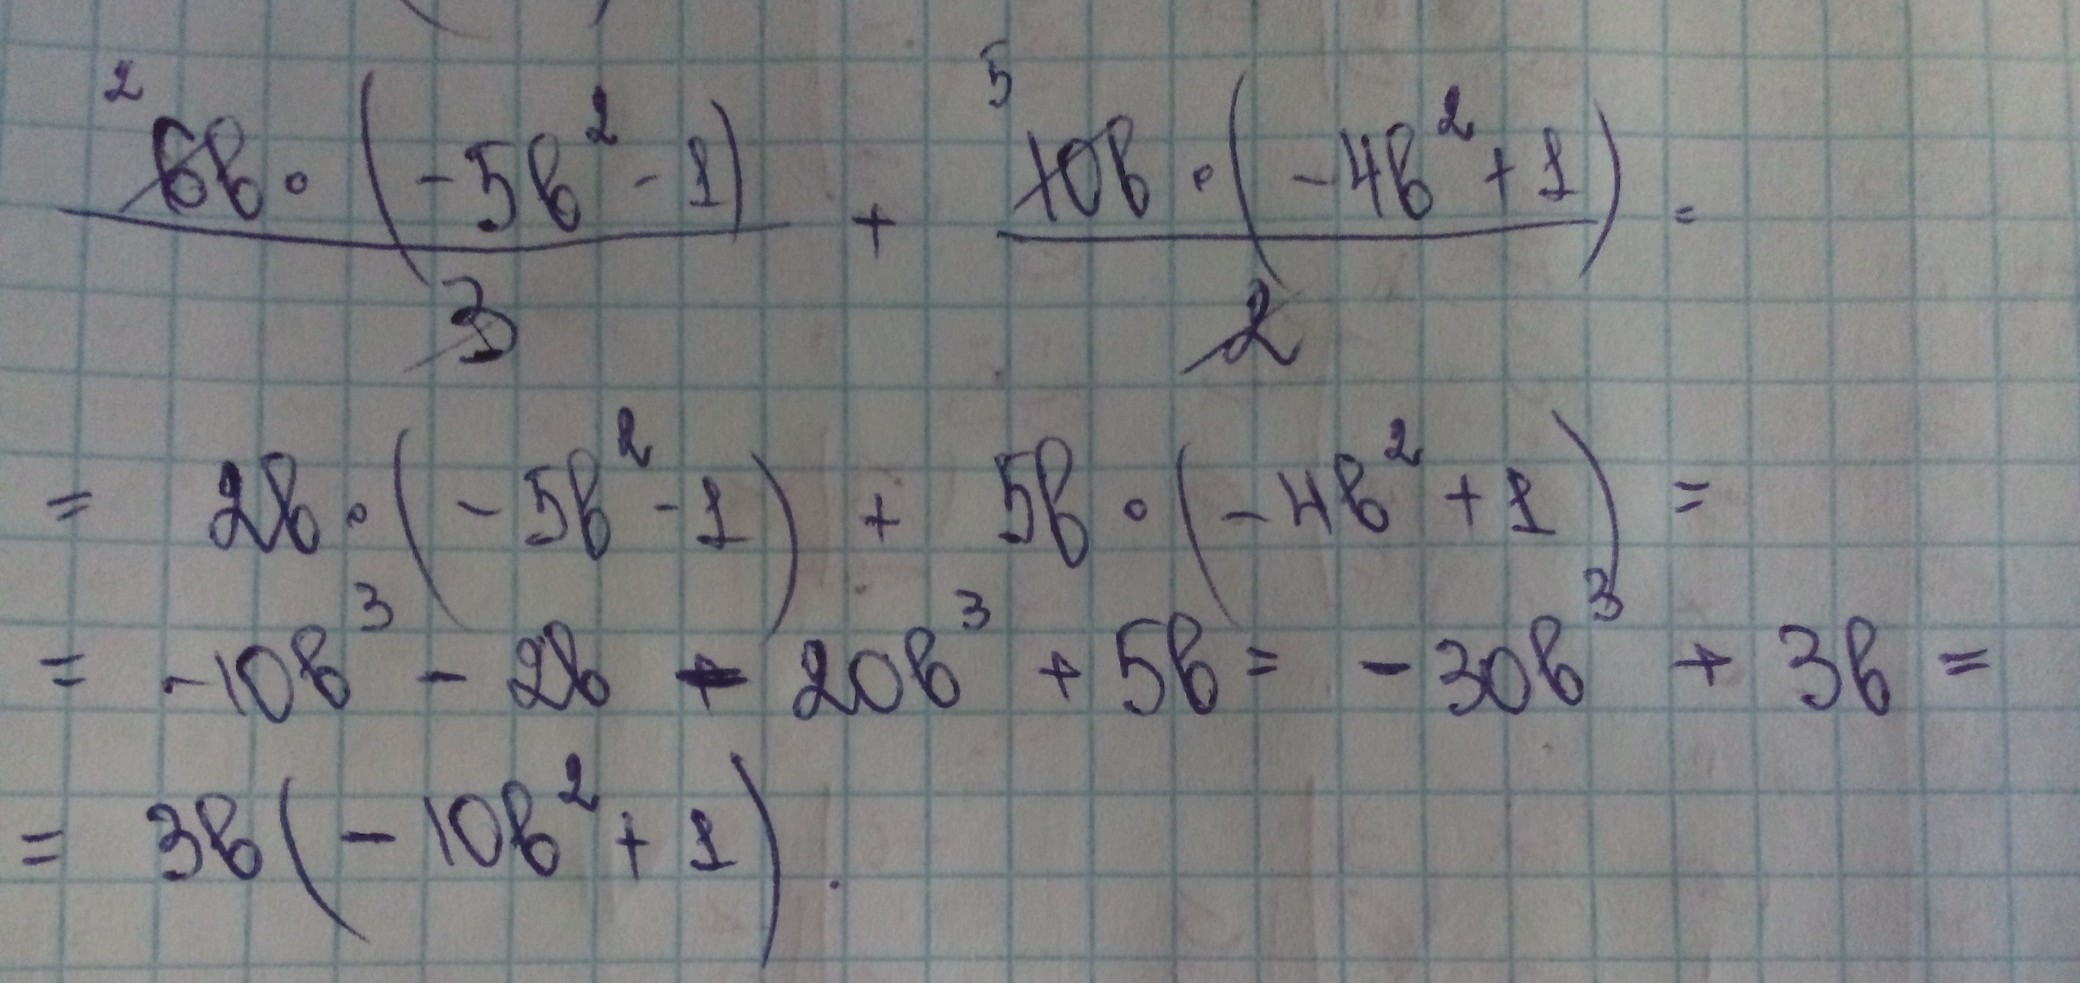 2 6b · (-5b² - 1) / 3 + 5 10b · (-4b² + 1) / 2 =
= 2b · (-5b² - 1) + 5b · (-4b² + 1) =
= -10b³ - 2b - 20b³ + 5b = -30b³ + 3b =
= 3b(-10b² + 1).